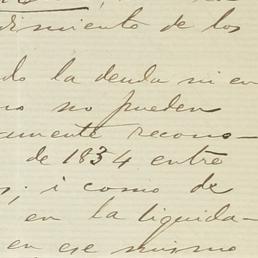 dimiento de los
do la deuda ni en
no pueden
camente recono-
de 1834 entre
s; i como de
en la liquida-
en ese mismo